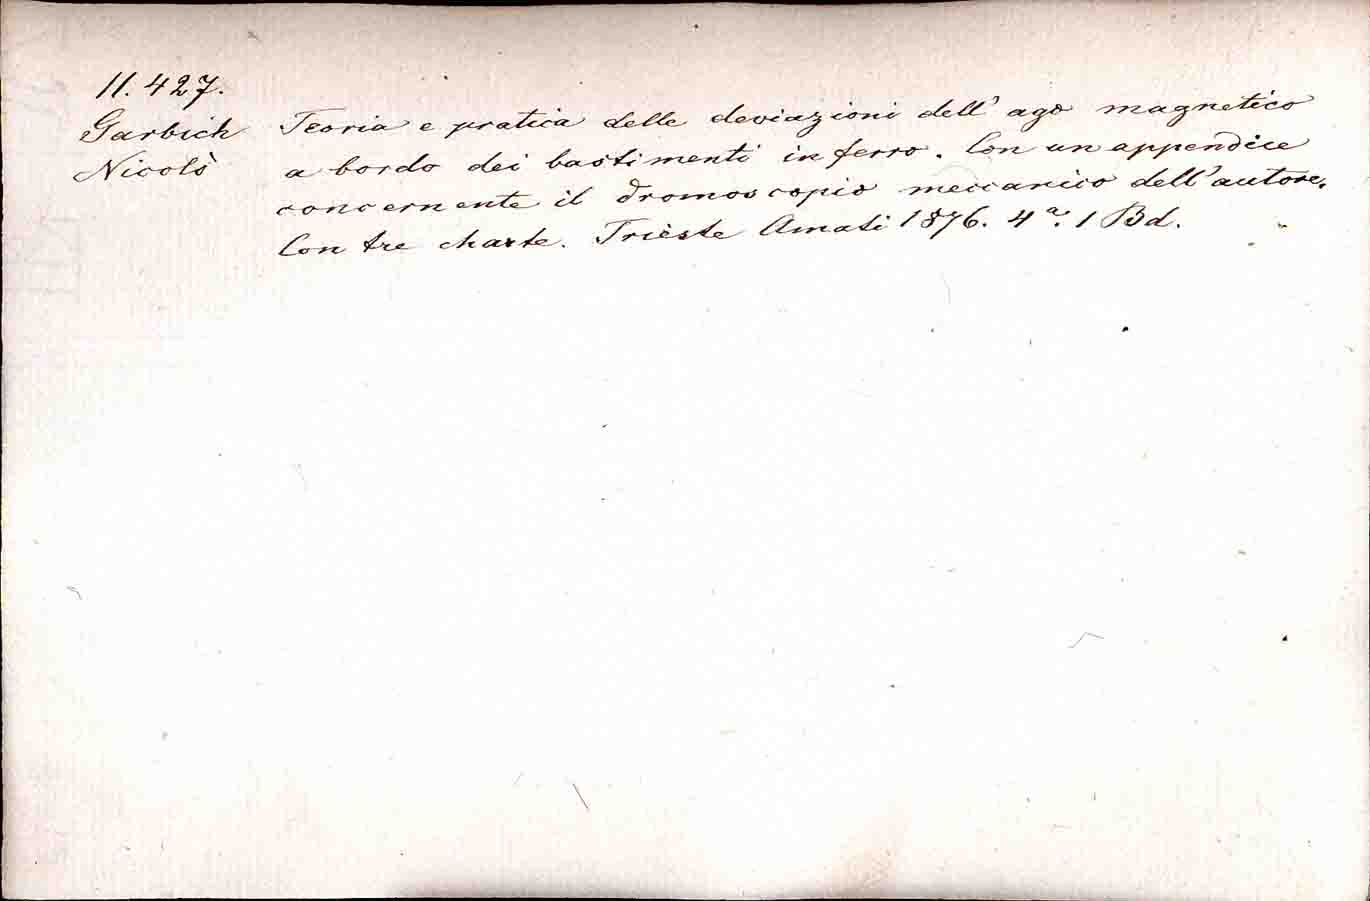 II. 427.
Garbich Nicolò
Teoria e pratica delle deviazioni dell' ago magnetico
a bordo dei bastimenti in ferro. Con un appendice
concernente il dromoscopio meccanico dell' autore.
Con tre charte. Trieste Amati 1876. 4°. 1 Bd.